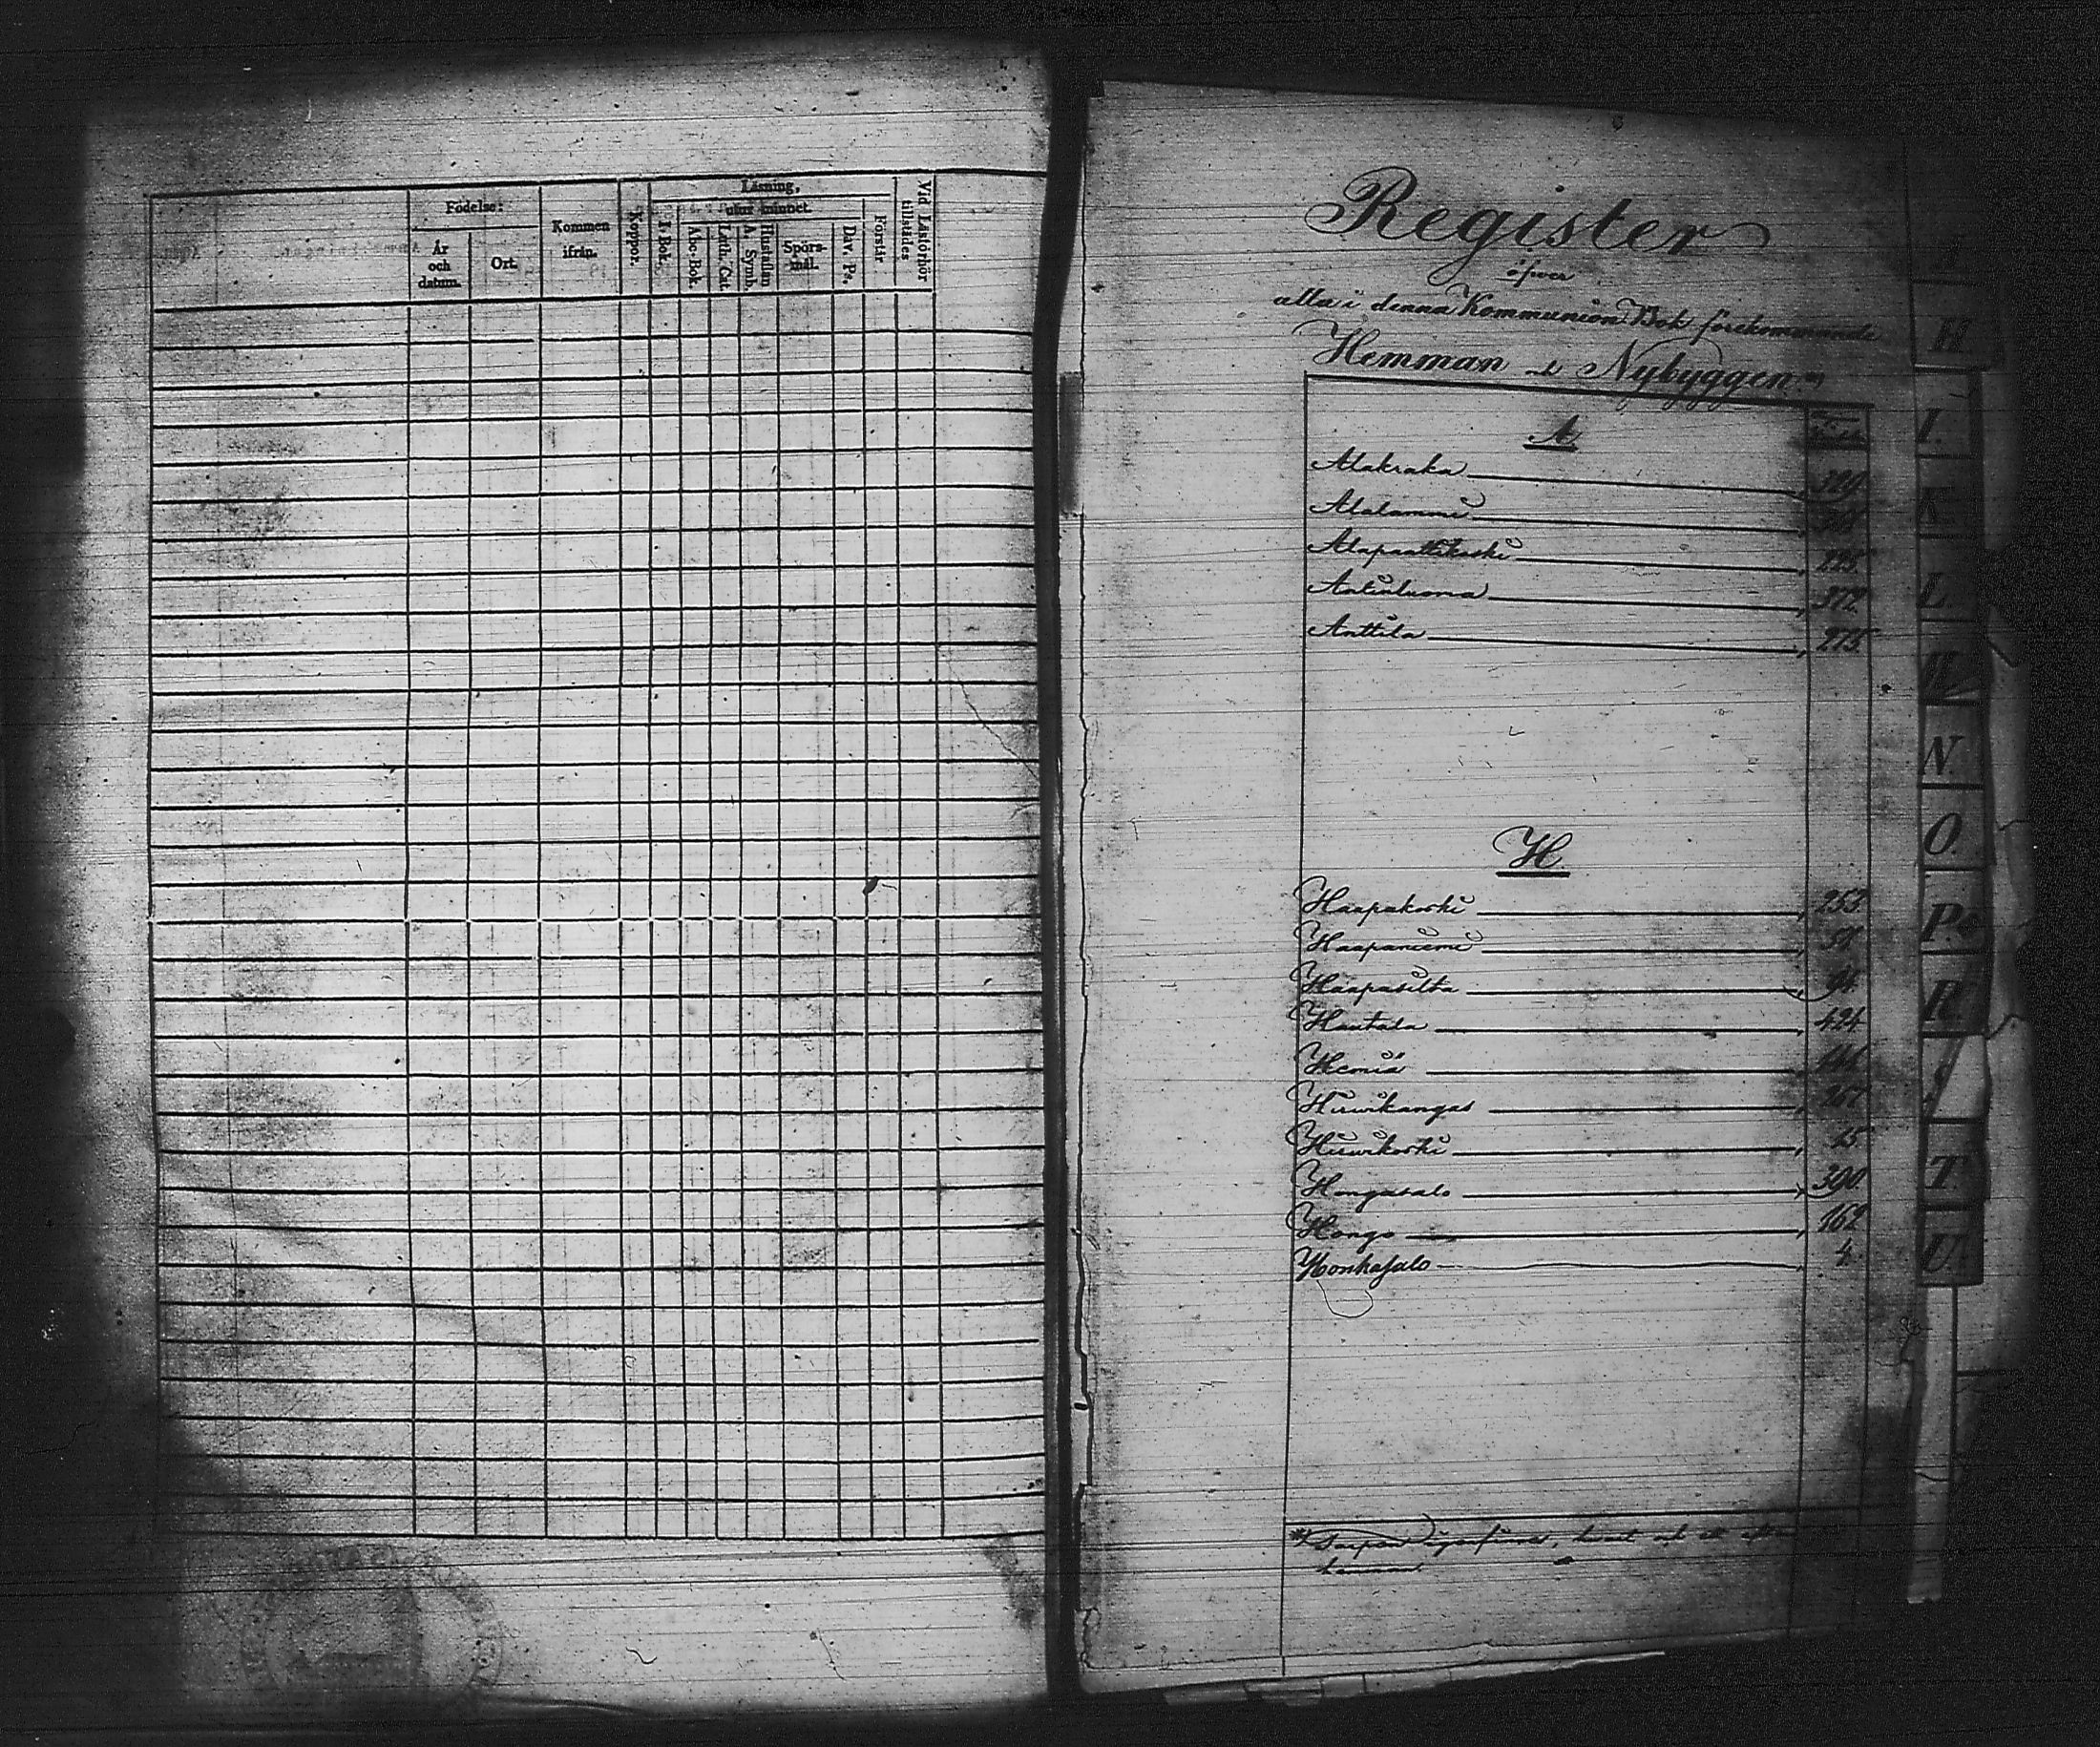 Födelse:
År och datum.
Ort.
Kommen ifrån.
Koppor.
Läsning,
I. Bok.
utur minnet.
Abc-Bok.
Luth. Cat.
Hustaflan A. Symb.
Spörsmål.
Dav. Ps.
Förstår
Vid Läsförhör tillstädes
Register
öfver
alla i denna Kommunion Bok förekommande
Hemman & Nybyggen *)
A
Alakraka 329.
Alalammi
Alapaattikoski 225.
Antinluoma 372.
Anttila 275.
H
Haapakoski 253.
Haapaniemi
Haapasilta 94.
Hautala 424.
Hemiä
Hirwikangas
Hirwikoski 15
Hongasalo 390.
Hongo 162
Honkasalo 4.
A
H
I.
K.
L.
M
N.
O.
P.
R
S
T.
U.